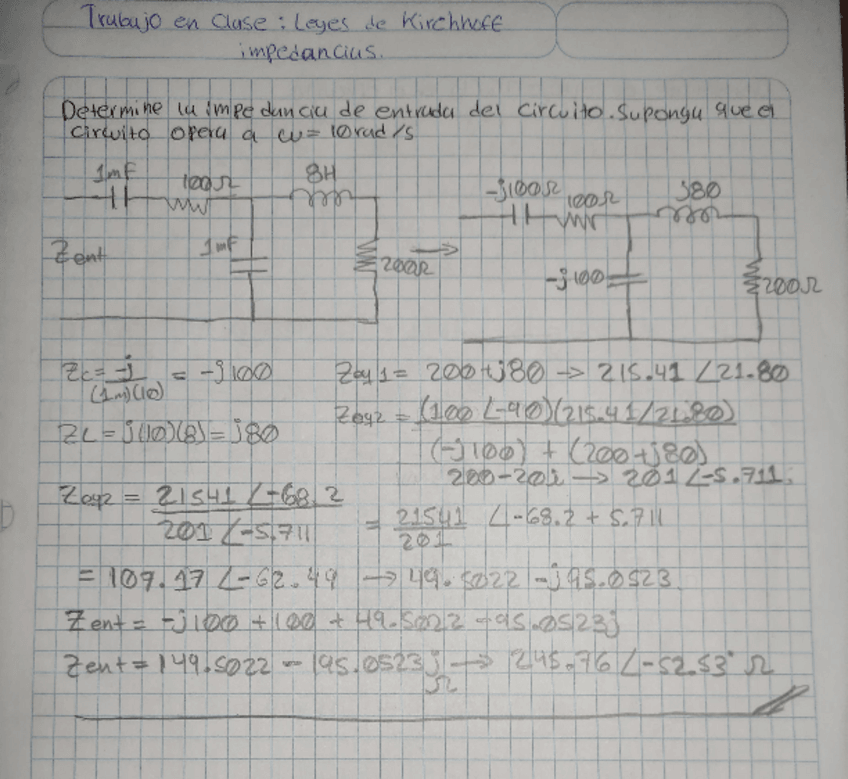 Trabajo en Clase: Leyes de Kirchhoff
impedancias.
Determine la impedancia de entrada del circuito. Suponga que el
circuito opera a ω = 10 rad/s
1mF 100Ω 8H -j100Ω 100Ω j80
Zent 1mF 200Ω -j100 200Ω
Zc = -j / (1m)(10) = -j100
Zeq1 = 200+j80 → 215.41 ∠21.80
ZL = j(10)(8) = j80
Zeq2 = (100 ∠-90)(215.41 ∠21.80) / (-j100) + (200+j80)
200-20j → 201 ∠-5.711
Zeq2 = 21541 ∠-68.2 / 201 ∠-5.711 = 21541 / 201 ∠-68.2 + 5.711
= 107.17 ∠-62.49 → 49.5022 -j95.0523
Zent = -j100 + 100 + 49.5022 -95.0523j
Zent = 149.5022 - 195.0523j Ω → 245.76 ∠-52.53° Ω